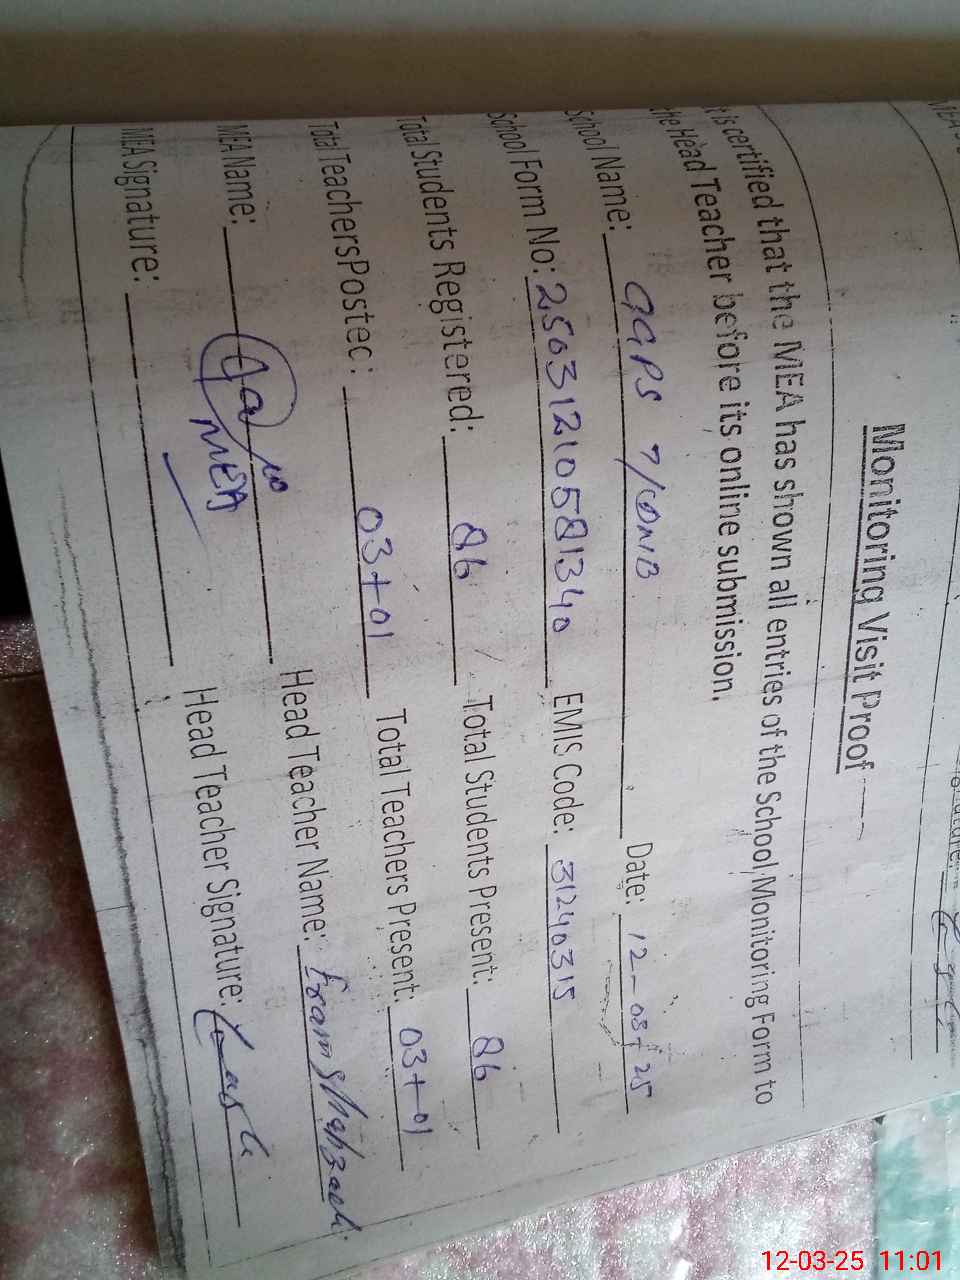 Monitoring Visit Proof
It is certified that the MEA has shown all entries of the School Monitoring Form to
the Head Teacher before its online submission.
School Name: GGPS 7/ Date: 12-03-25
School Form No: 25031210581340 EMIS Code: 31240315
Total Students Registered: 86 Total Students Present: 86
Total Teachers Postec: 03+01 Total Teachers Present: 03+01
MEA Name: MEA Head Teacher Name: Shahzadi
MEA Signature: Head Teacher Signature:
12-03-25 11:01